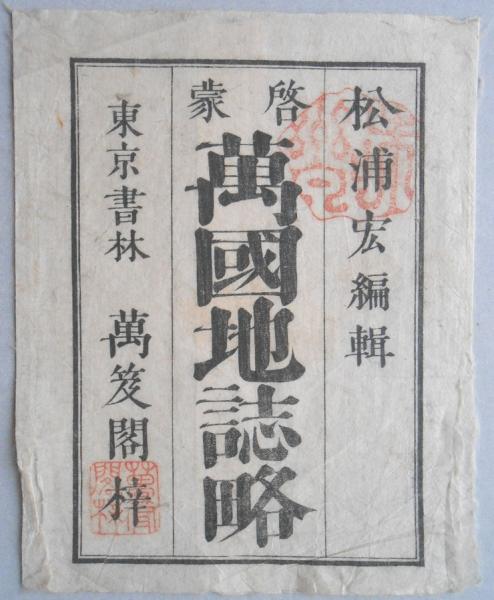 松浦宏編輯
啓蒙
萬國地誌略
東京書林 萬笈閣梓